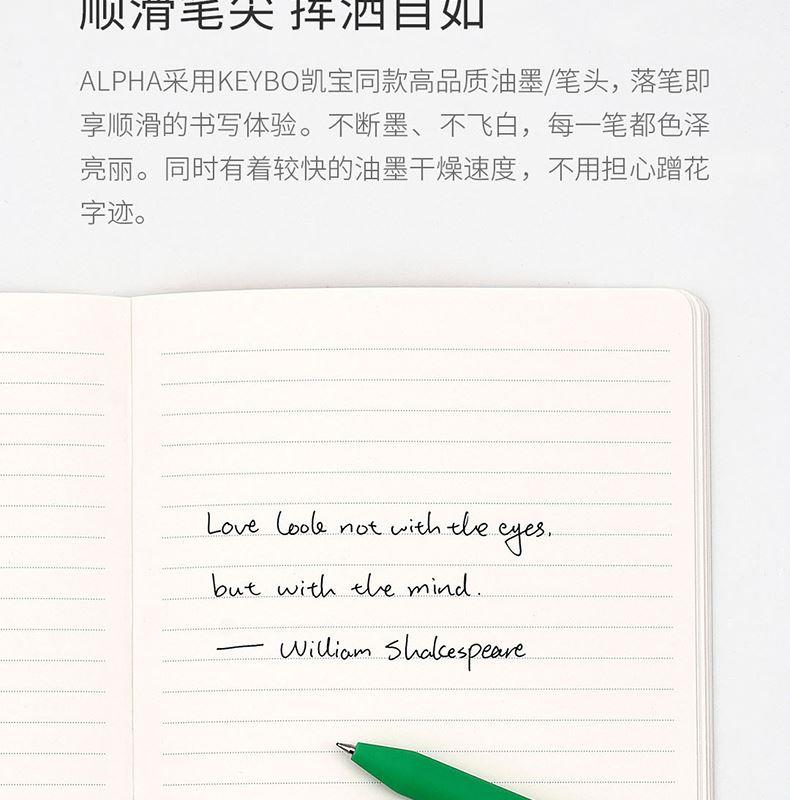 顺滑笔尖 挥洒自如
ALPHA采用KEYBO凯宝同款高品质油墨/笔头，落笔即
享顺滑的书写体验。不断墨、不飞白，每一笔都色泽
亮丽。同时有着较快的油墨干燥速度，不用担心蹭花
字迹。
Love look not with the eyes,
but with the mind.
— William Shakespeare